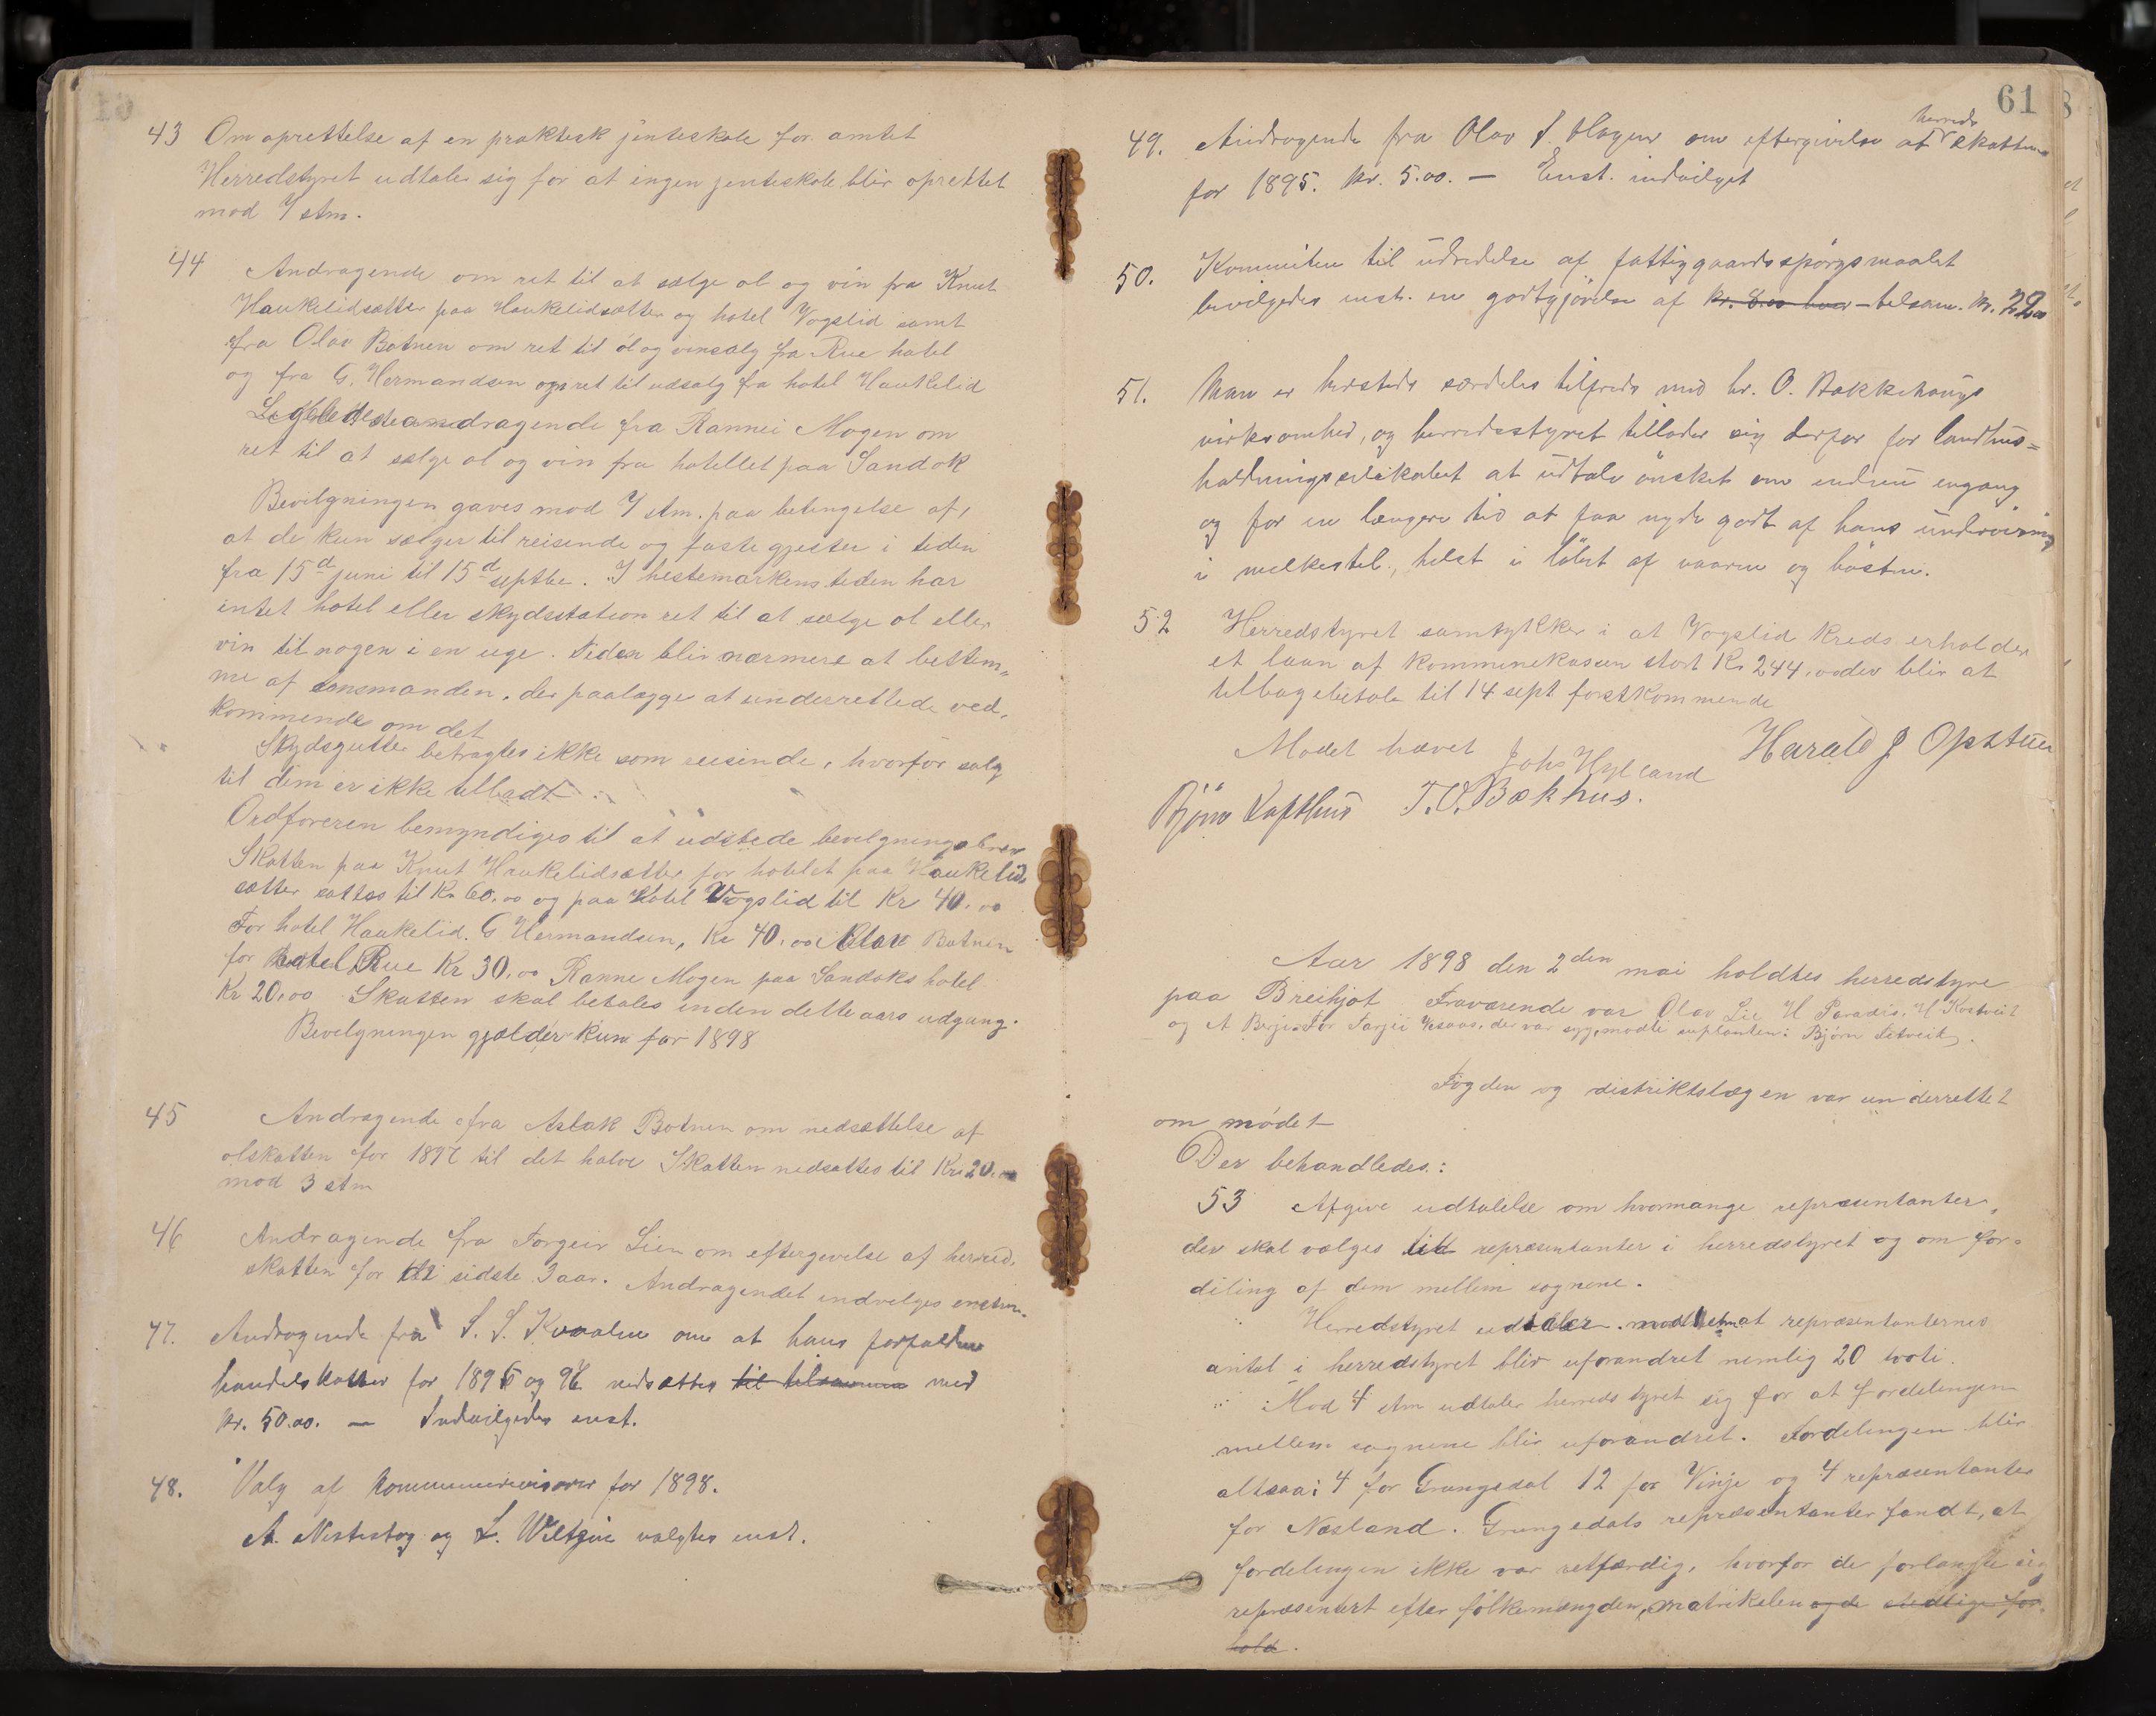 43 Om oprettelse af en praktisk jenteskole for amtet
Herredstyret udtaler sig for at ingen jenteskole blir oprettet
mod 7 stm.
44 Andragende om ret til at sælge øl og vin fra Knut
Haukelidsætter paa Haukelidsætter og hotel Vogslid samt
fra Olav Botnen om ret til øl og vinsalg fra Rue hotel
og fra G. Hermandsen om ret til udsalg fra hotel Haukelid
Ligeledes andragende fra Rannei Mogen om
ret til at sælge øl og vin fra hotellet paa Sandok
Bevilgningen gaves mod 7 stm. paa betingelse af,
at de kun sælger til reisende og faste gjester i tiden
fra 15d juni til 15d septbr. I hestemarkenstiden har
intet hotel eller skydsstation ret til at sælge øl eller
vin til nogen i en uge. Tiden blir nærmere at bestem„
me af lensmanden, der paalægge at underrettede ved.
kommende om det
Skydsgutter betragtes ikke som reisende, hvorfor salg
til dem er ikke tilladt
Ordføreren bemyndiges til at udstede bevilgningsbrev
Skatten paa Knut Haukelidsætter for hotelet paa Haukelid
sætter sattes til Kr 60,00 og paa Hotel Vogslid til Kr 40.00
For hotel Haukelid. G Hermandsen, Kr 40,00 Olav Botnen
for hotel Rue Kr 30,00 Ranne Mogen paa Sandoks hotel
Kr 20,00 Skatten skal betales inden dette aars udgang.
Bevilgningen gjælder kun for 1898
45 Andragende fra Aslak Botnen om nedsættelse af
ølskatten for 1897 til det halve Skatten nedsattes til Kr 20.
mod 3 stm
46 Andragende fra Torgeir Lien om eftergivelse af herred.
skatten for de sidste 3 aar. Andragendet indvilges enstm.
47. Andragende fra S. S. Kvaalen om at hans forfaldne
handelskatter for 1896 og 97 nedsættes til tilsammen med
kr. 50.00. — Indvilgedes enst.
48. Valg af kommunerevisorer for 1898.
A. Nestestog og L. valgtes enst.
61
49. Andragende fra Olav S. Hagen om eftergivelse af herreds skatten
for 1895. kr. 5.00. — Enst. indvilget
50. Kommiteen til udredelse af fattiggaardsspørgsmaalet
bevilgedes enst. en godtgjørelse af kr. 8.00 hver – tilsam. kr. 22
51. Man er herstede særdeles tilfreds med hr. O. Bakkehaugs
virksomhed, og herredsstyret tillader sig derfor for landhus=
holdningsselskabet at udtale ønsket om endnu engang
og for en længere tid at faa nyde godt af hans undervisning
i melkestel, helst i løbet af vaaren og høsten.
52 Herredstyret samtykker i at Vogslid Kreds erholder
et laan af kommunekassen stort Kr 244,00 der blir at
tilbagebetale til 14 sept førstkommende
Mødet hævet Johs Hylland Harald J Opstuen
Bjørn Lofthus T. O. Bækhus.
Aar 1898 den 2den mai holdtes herredstyre
paa Breihjøt Fraværende var Olav Lie H Paradis, H Kostveit
og A Berge. For Targei Vesaas, der var syg, mødte suplanten: Bjørn Setveit.
Fogden og distriktslægen var underrettet
om mødet
Der behandledes:
53 Afgive udtalelse om hvormange repræsentanter,
der skal vælges til repræsentanter i herredstyret og om for=
deling af dem mellem sognene.
Herredstyret udtaler mod 1 stm at repræsentanternes
antal i herredstyret blir uforandret nemlig 20 tyve.
Mod 4 stm udtaler herredstyret sig for at fordelingen
mellem sognene blir uforandret. Fordelingen blir
altsaa: 4 for Grungedal 12 for Vinje og 4 repræsentanter
for Nesland. Grungedals repræsentanter fandt, at
fordelingen ikke var retfærdig, hvorfor de forlangte sig
repræsentert efter folkemængden, matrikelen og de stedlige for.
hold.